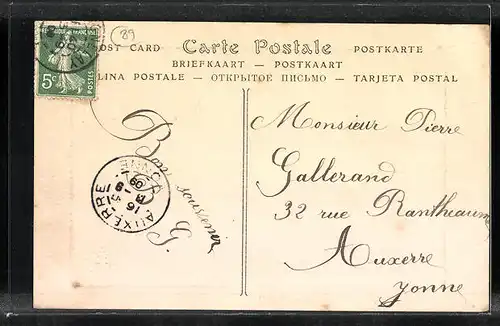 89
POST CARD Carte Postale POSTKARTE
BRIEFKAART — POSTKAART
LINA POSTALE – ОТКРЫТОЕ ПИСЬМО – TARJETA POSTAL
5c POSTES
Bon souvenir
G.
AUXERRE
YONNE
Monsieur Pierre
Gallerand
32 rue Rantheaume
Auxerre
Yonne